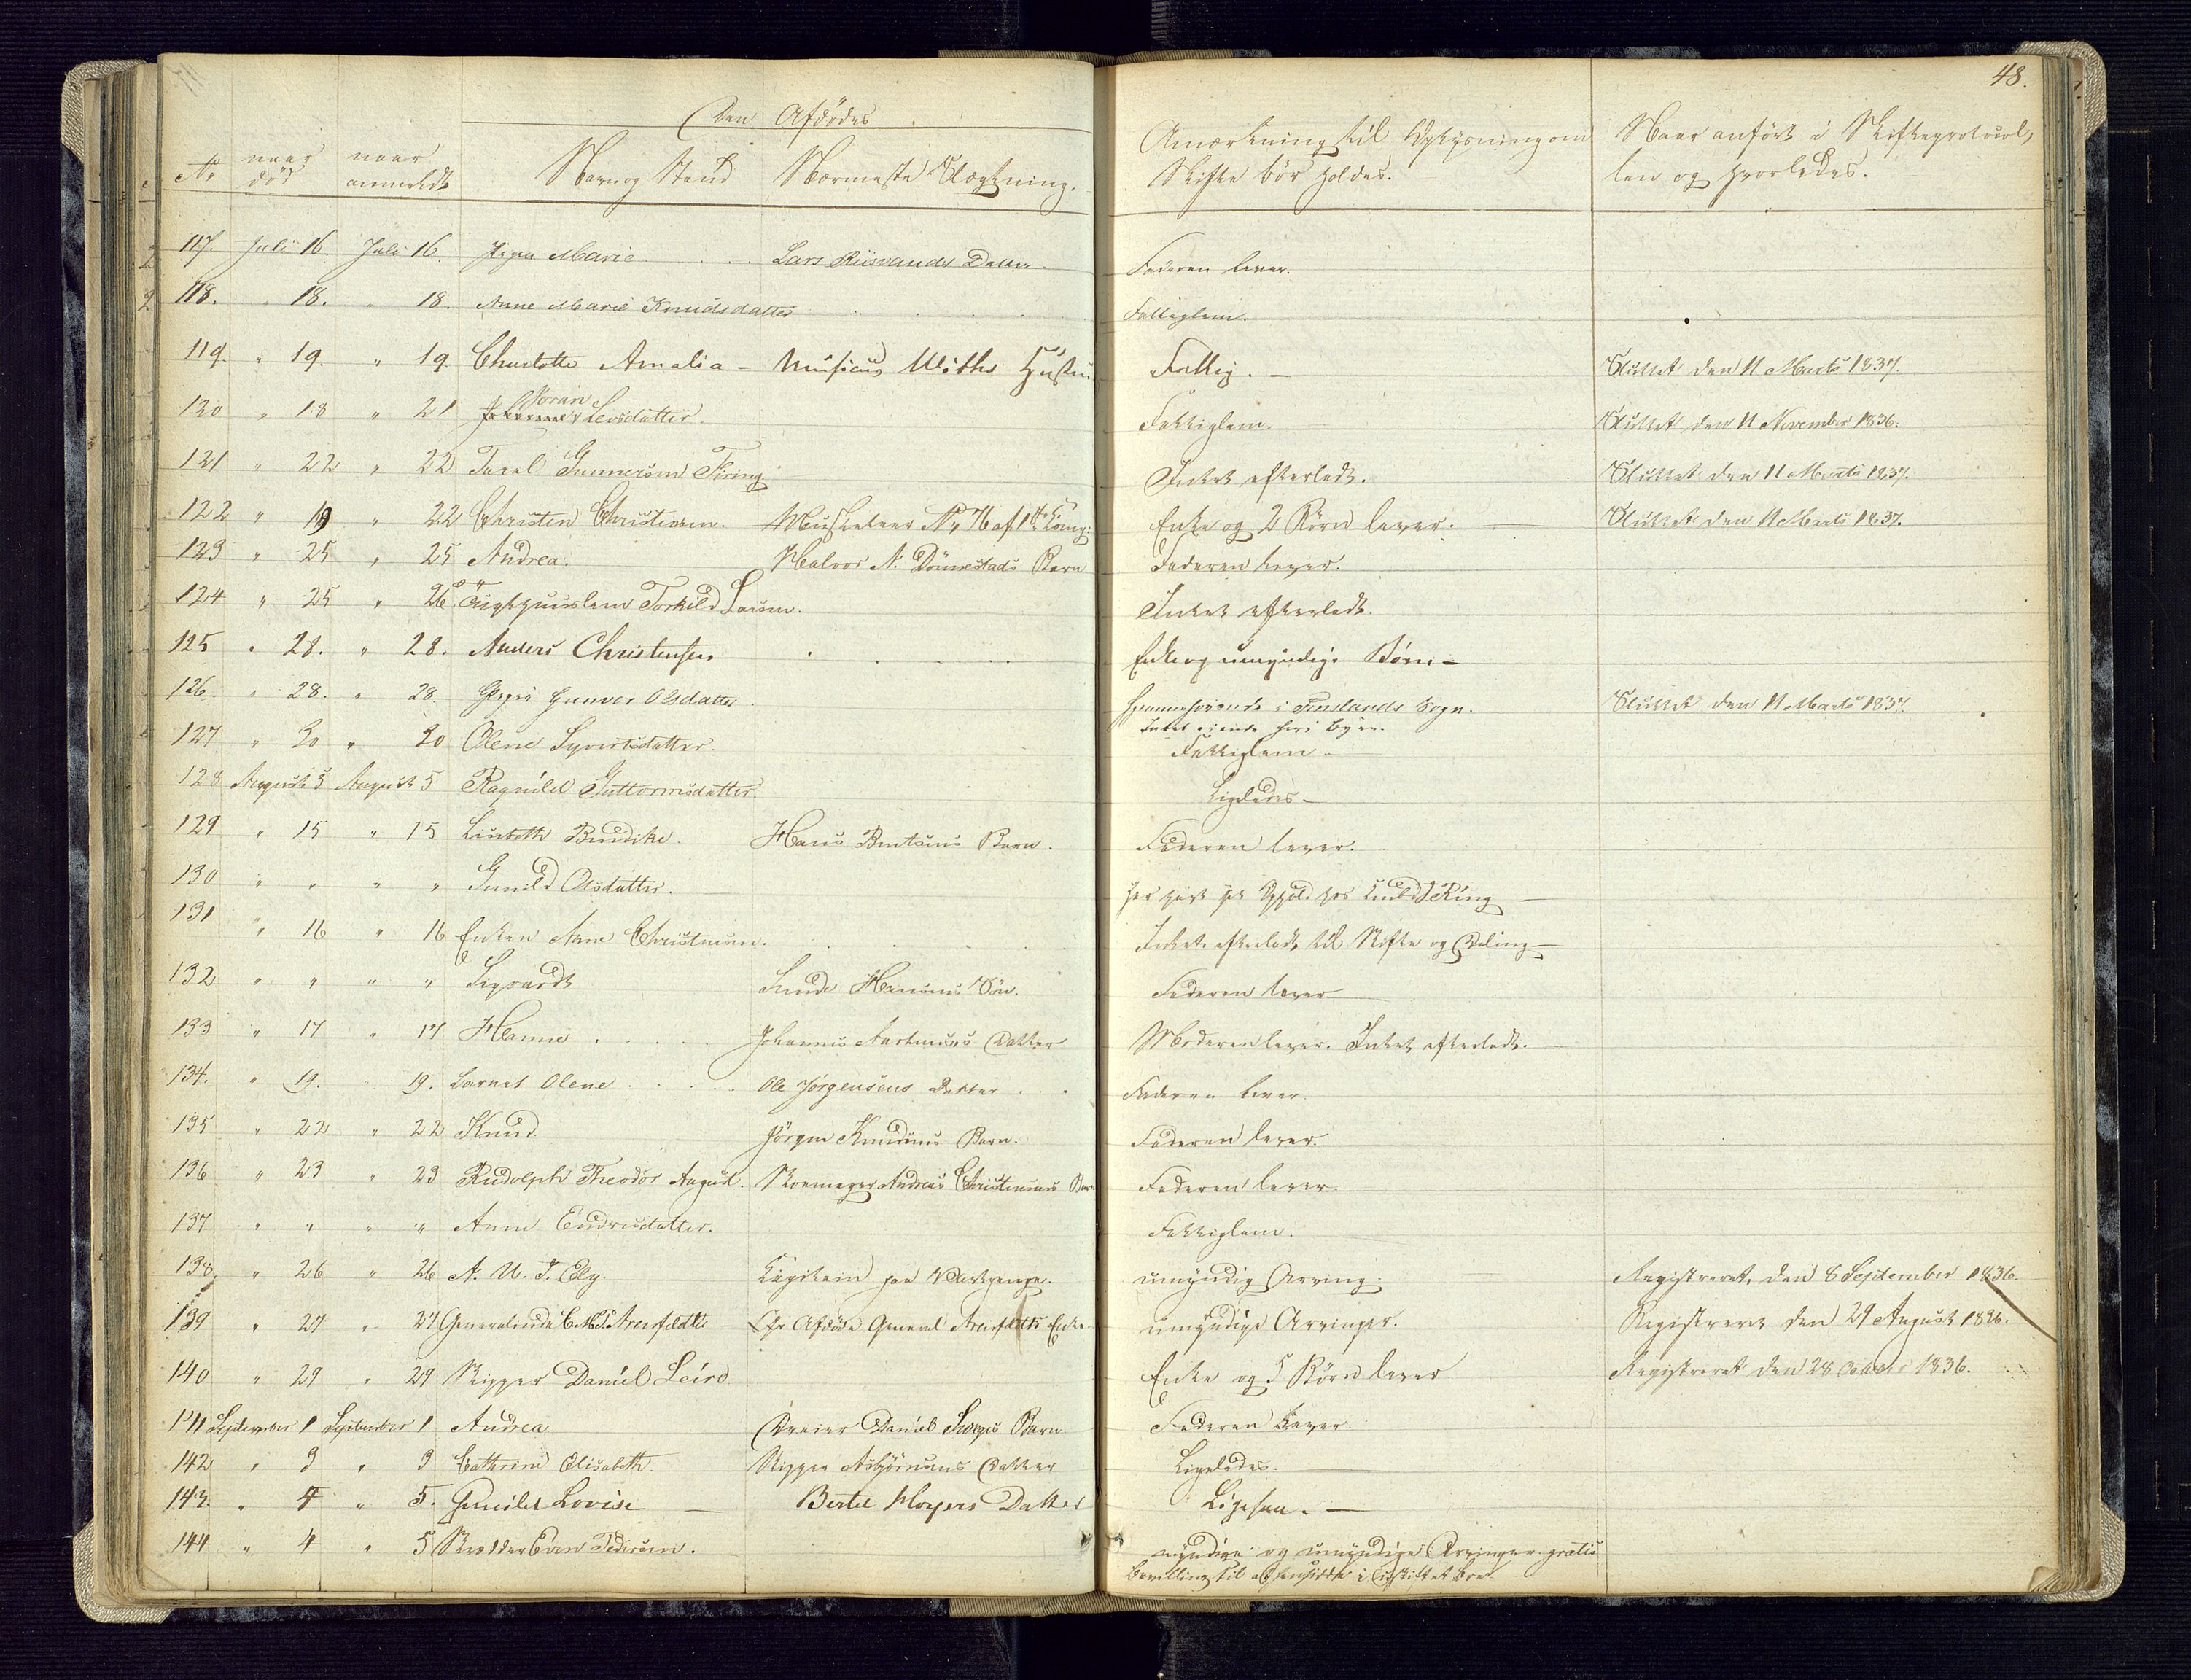 48.
Den Afdödes
No naar död naar anmeldt Navn og Stand Nærmeste Slægtning. Anmærkning til Oplysning om Skifte bör holdes. Naar anfört i Skifteprotocollen og hvorledes.
117. Juli 16. Juli 16. Marie Lars Datter Faderen lever.
118. " 18. " 18. Anne Marie Knudsdatter Fattiglem.
119. " 19. " 19 Charlotte Amalia - Musicus Hustru Fattig. - Sluttet den 11 Marts 1837.
120 " 18 " 21 Joran Levsdatter. Fattiglem. Sluttet den 11 November 1836.
121 " 22 " 22 Taral Gunnersen Intet efterladt. Sluttet den 11 Marts 1837.
122 " 19 " 22 Christen Christensen. Musketeer No 76 af 1ste Comp: Enke og 2 Börn lever. Sluttet den 11 Marts 1837.
123 " 25 " 25 Andrea. Halvor N. Dönnestads Barn Faderen lever.
124 " 25 " 26 Tugthuuslem Torkild Larsen. Intet efterladt.
125 " 28. " 28. Anders Christensen Enke og umyndige Börn -
126 " 28. " 28 Gunver Olsdatter Hjemmehörende i Finslands Sogn.
Intet eiende her i Byen. Sluttet den 11 Marts 1837.
127 " 30 " 30 Olene Syvertsdatter. Fattiglem -
128 August 5 August 5 Ragnild Guttormsdatter. Ligeledes -
129 " 15 " 15 Lisebeth Bendikte. Hans Bentsens Barn. Faderen lever.
130 " " " " Gunild Olsdatter. har havt sit Ophold hos
131 " 16 " 16 Enken Anne Christensen. Intet efterladt til Skifte og Deling -
132 " " " " Sigvardt Hansens Sön. Faderen lever
133 " 17 " 17 Hanne Johannes Datter Moderen lever. Intet efterladt.
134. " 19. " 19. Barnet Olene Ole Jörgensens Datter Faderen lever.
135 " 22 " 22 Knud Jörgen Knudsens Barn. Faderen lever.
136 " 23 " 23 Rudolph Theodor August. Skomager Andreas Christensens Barn Faderen lever.
137 " " " " Anne Endresdatter. Fattiglem.
138. " 26 " 26 A. U. T. Ely Capitain paa Vartpenge. umyndig Arving. Registreret, den 8 September 1836.
139 " 27 " 27 Generalinde Arenfeldt Afdöde General Arenfeldts Enke umyndige Arvinger. Registreret den 29 August 1836.
140 " 29 " 29 Skipper Daniel Leird Enke og 5 Börn lever Registreret den 28 1836.
141 September 1 September 1 Andrea Dreier Daniel Barn Faderen lever.
142 " 3 " 3 Cathrine Elisabeth. Skipper Asbjörnsens Datter Ligeledes.
143. " 4 " 5. Gunild Lovise Bertel Datter Ligesaa. -
144 " 4 " 5 Skrædder Even Pedersen. myndige og umyndige Arvinger gratis
bevilling til at hensidde i uskiftet boe.